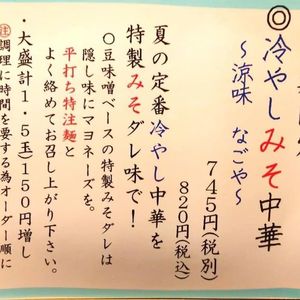 ◎冷やしみそ中華
～涼味 なごや～
745円(税別)
820円(税込)
夏の定番冷やし中華を
特製みそダレ味で!
○豆味噌ベースの特製みそダレは
隠し味にマヨネーズを。
平打ち特注麺と
よく絡めてお召し上がり下さい。
・大盛計1.5玉)150円増し
注調理に時間を要する為オーダー順に